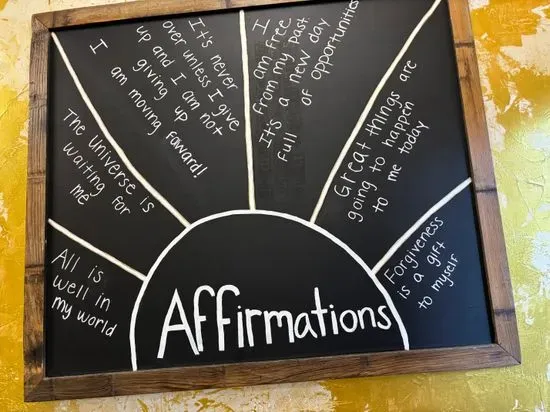 All is
well in
my world
The universe is
waiting for
me
It's never
over unless I give
up and I am not
giving up
I am moving foward!
I
am free
from my past
It's a new day
full of opportunities
Great things are
going to happen
to me today
Forgiveness
is a gift
to myself
Affirmations